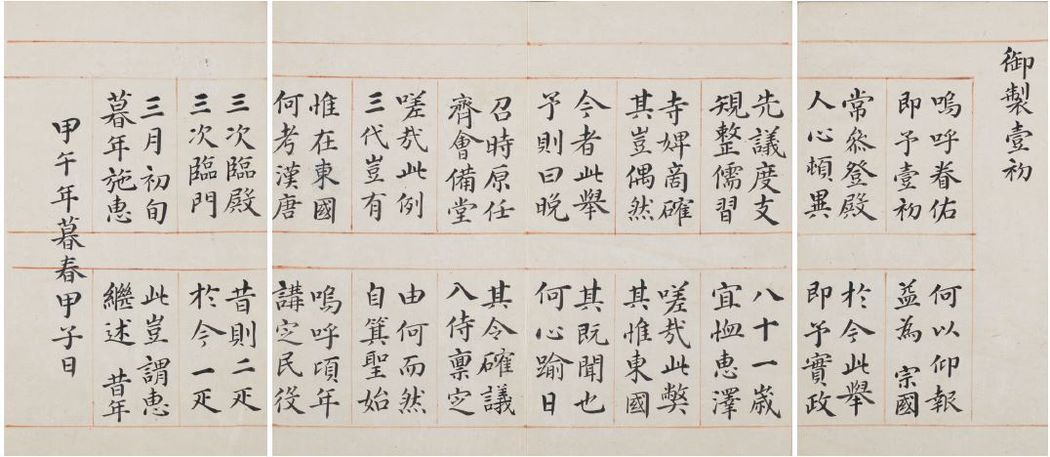 御製壹初
嗚呼眷佑
即予壹初
何以仰報
益為 宗國
常叅登殿
人心頓異
於今此舉
即予實政
先議度支
規整儒習
八十一歲
宜恤惠澤
寺婢啇確
其豈偶然
嗟哉此弊
其惟東國
今者此舉
予則曰晚
其既聞也
何心踰日
召時原任
齊會備堂
其令確議
入侍稟定
嗟哉此例
三代豈有
由何而然
自箕聖始
惟在東國
何考漢唐
嗚呼頃年
講定民役
三次臨殿
三次臨門
昔則二疋
於今一疋
三月初旬
暮年施惠
此豈謂惠
繼述 昔年
甲午年暮春甲子日